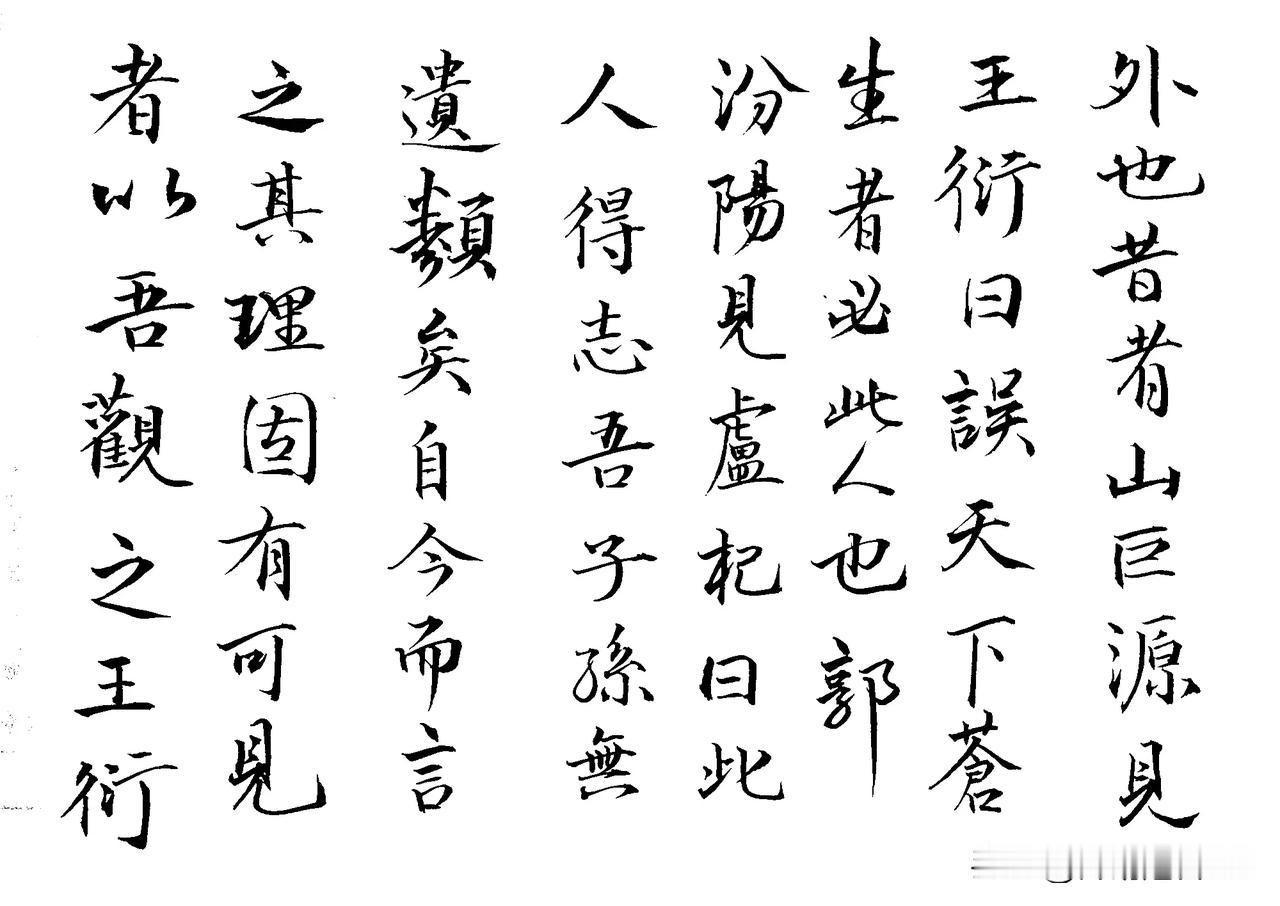 外也昔者山巨源見
王衍曰誤天下蒼
生者必此人也郭
汾陽見盧杞曰此
人得志吾子孫無
遺類矣自今而言
之其理固有可見
者以吾觀之王衍